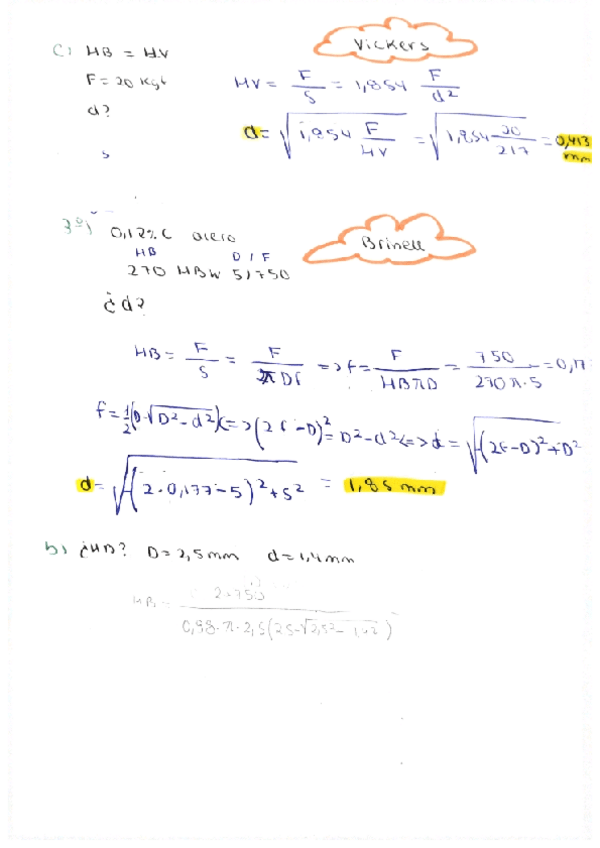 Vickers
C) HB = HV
F = 20 Kgf
HV = F/S = 1,854 F/d²
d?
d = √(1,854 F/HV) = √(1,854 20/217) = 0,413 mm
3º) 0,12% C acero
Brinell
HB D / F
270 HBW 5/750
¿d?
HB = F/S = F/πDf => f = F/HBπD = 750/270π·5 = 0,17
f = 1/2(D-√D²-d²) <=> (2f-D)² = D²-d² <=> d = √-(2f-D)²+D²
d = √-(2·0,177-5)²+5² = 1,85 mm
b) ¿HB? D = 2,5mm d = 1,4mm
HB = 2·750
0,98·π·2,5(2,5-√2,5²-